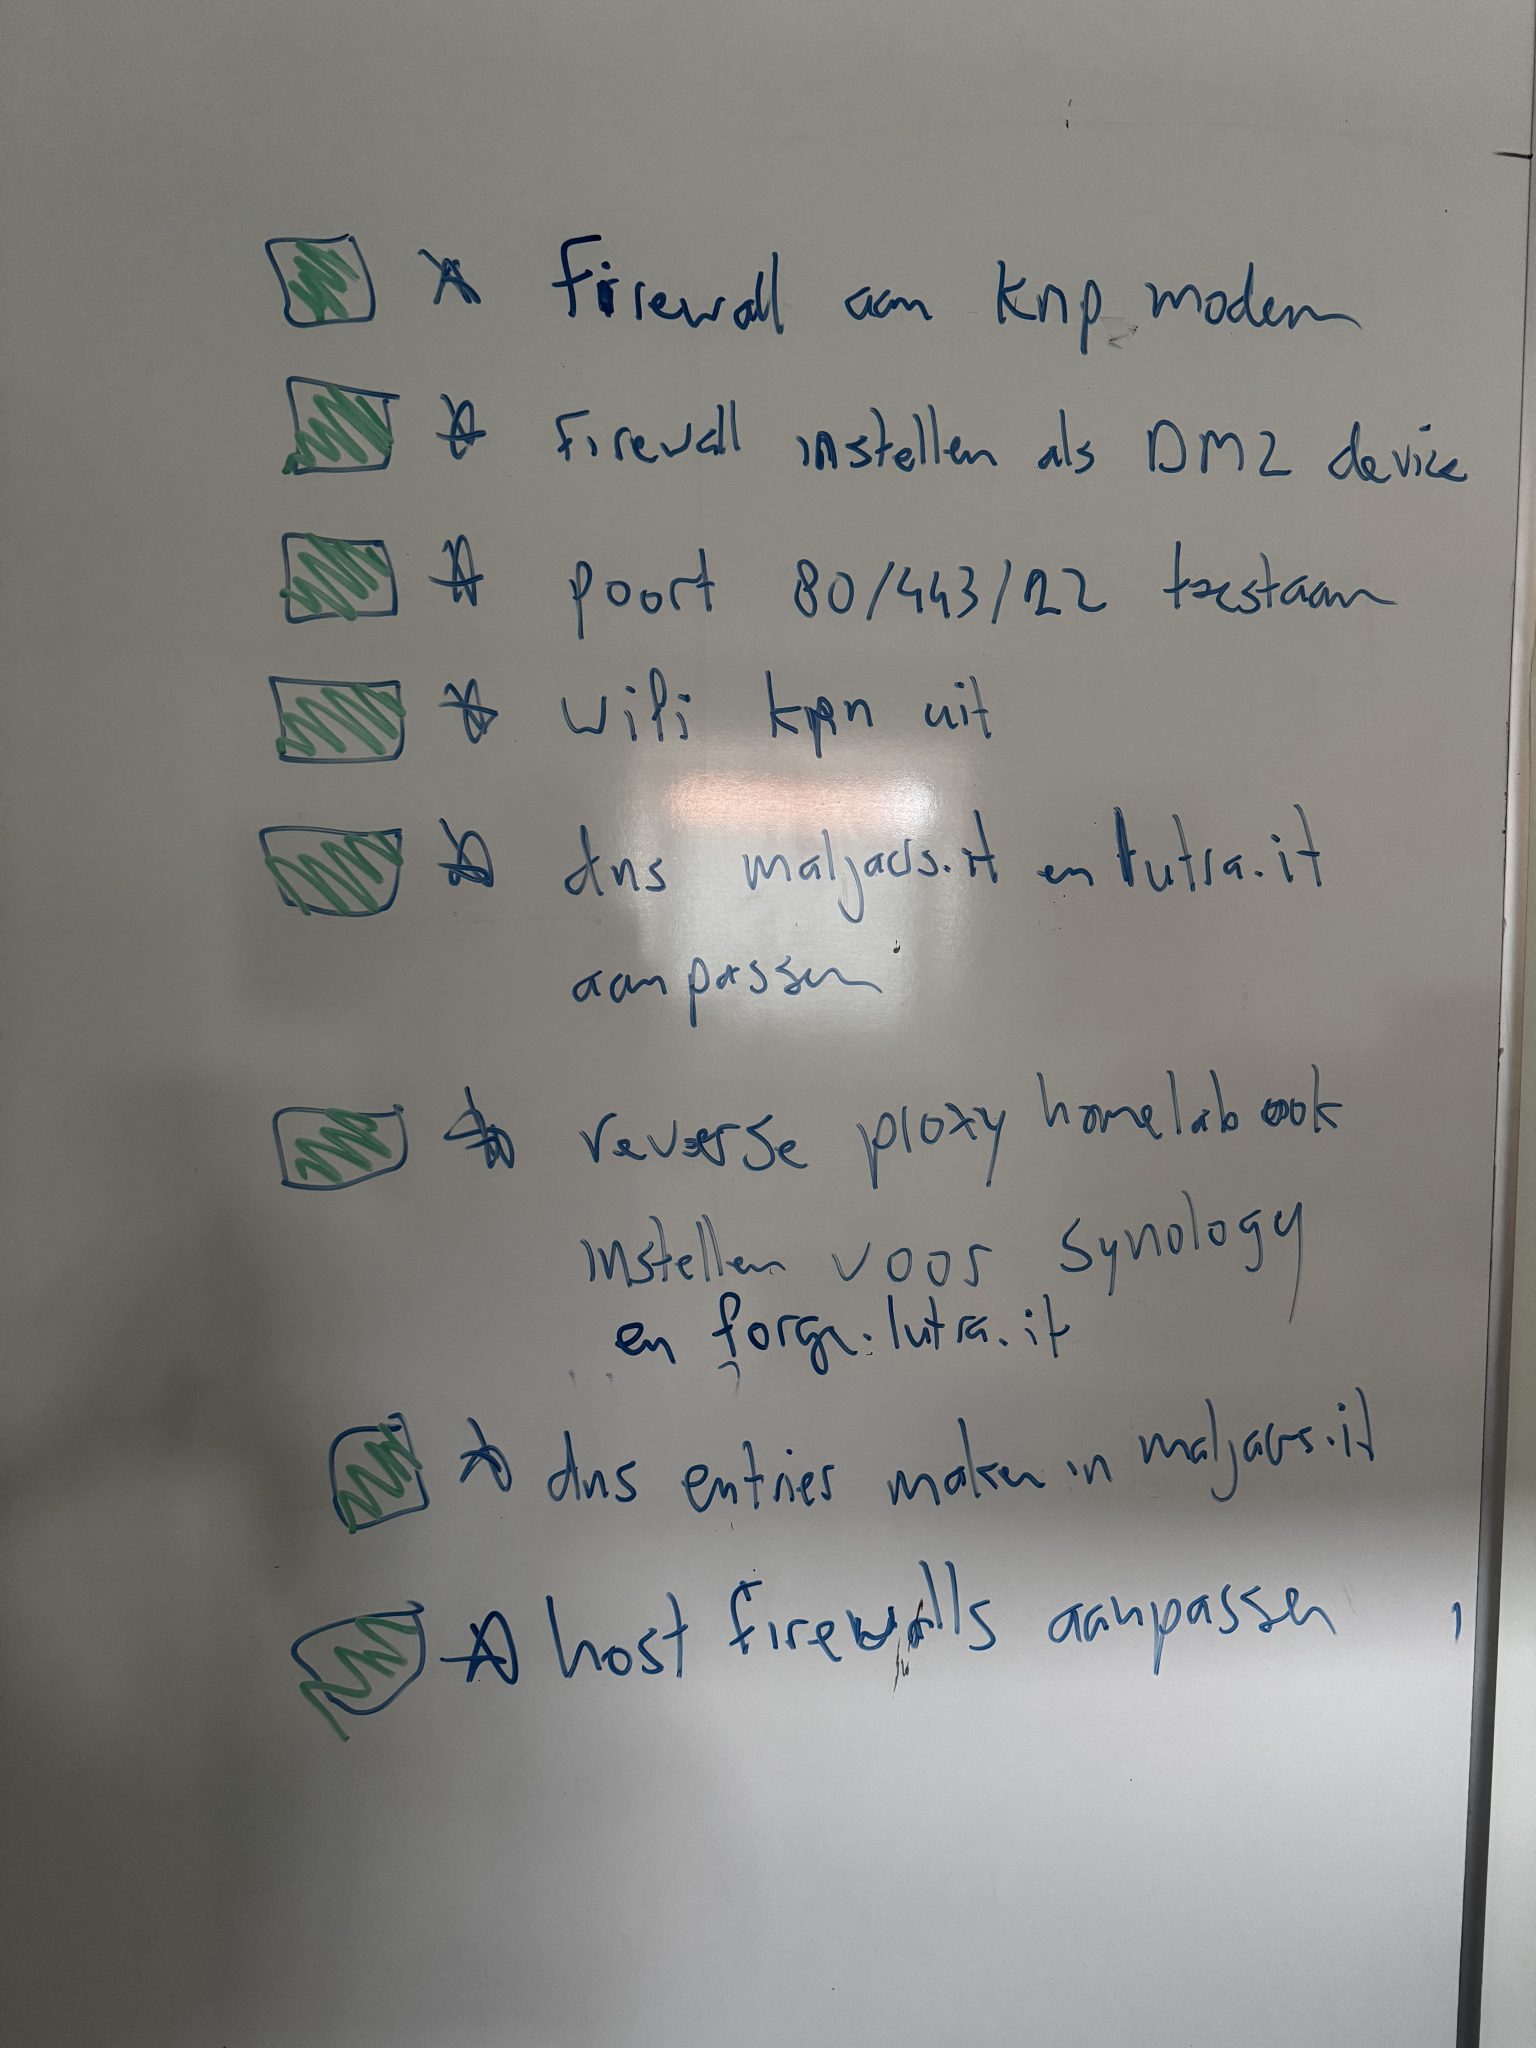 * Firewall aan knp modem
* Firewall instellen als DMZ device
* poort 80/443/22 toestaan
* wifi kpn uit
* dns maljaars.it en lutra.it
aanpassen
* reverse proxy homelab ook
instellen voor synology
en forge.lutra.it
* dns entries maken in maljaars.it
* host firewalls aanpassen